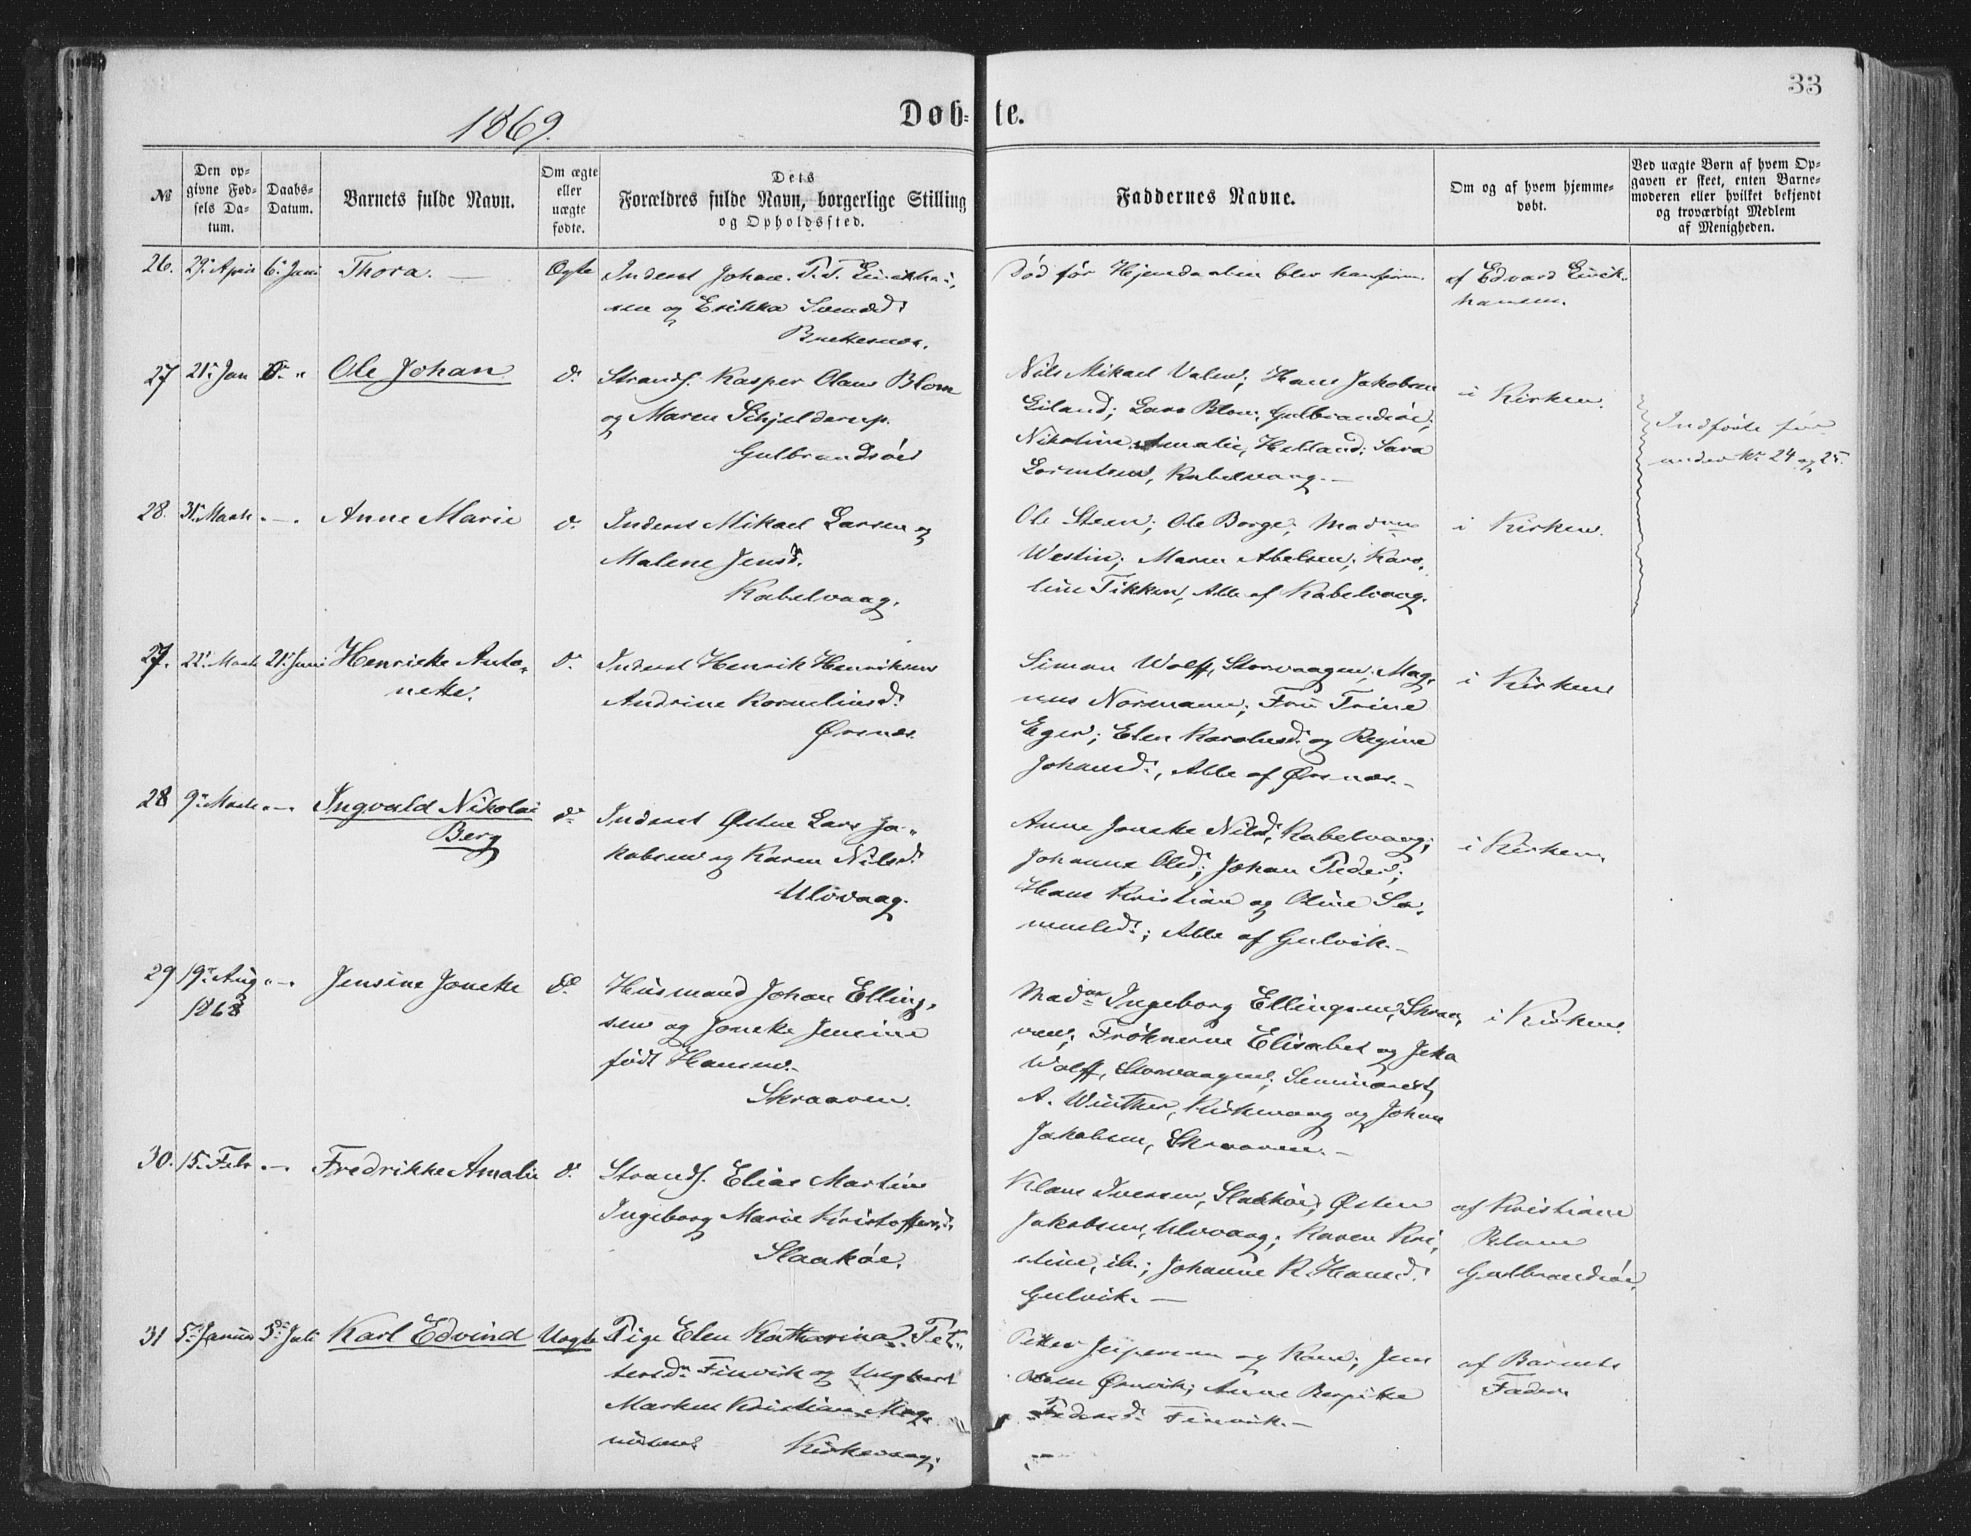 33
1869.
Døb- te.
№
Den op-
givne Fød-
sels Da-
tum.
Daabs-
Datum.
Barnets fulde Navn.
Om ægte
eller
uægte
fødte.
Dets
Forældres fulde Navn, borgerlige Stilling
og Opholdssted.
Faddernes Navne.
Om og af hvem hjemme-
døbt.
Ved uægte Børn af hvem Op-
gaven er skeet, enten Barne-
moderen eller hvilket bekjendt
og troværdigt Medlem
af Menigheden.
26. 29. April 6. Juni Thora. Ægte
Inderst Johan
sen og Erikka
Død før Hjemdaaben blev
af Edvard Erick-
hansen.
27 21. Jan Ole Johan d.
Strands. Kasper Olaus Blom
og Maren Schjelderup.
Gulbrandsöes
Nils Mikael Valen; Hans Jakobsen
Eiland; Lars Blom, Gulbrandsöe;
Nikoline Amalie Helland; Sara
Lorentsen, Kabelvaag.
i Kirken.
Indførte før
under No 24 og 25.
28. 31. Marts Anne Marie d.
Inderst Mikael Larsen og
Malene Jensd.
Kabelvaag.
Ole Steen; Ole Borge; Madam
Westin; Maren Abelsen; Karo-
line Tikken, Alle af Kabelvaag.
i Kirken.
27. 22. Marts 21. Juni Henrikke Anto-
nette. d.
Inderst Henrik Henriksen
Andrine Korneliusd.
Ørsnes.
Simon Wolff, Storvaagen; Mag-
nus Normann; Fru Trine
Eger; Elen Karolusd. og Regine
Johansd., Alle af Ørsnes.
i Kirken
28 9. Marts Ingvald Nikolai
Berg d.
Inderst Østen Lars Ja-
kobsen og Karen Nilsd.
Ulvvaag.
Anne Joneke Nilsd. Kabelvaag;
Johanna Olsd.; Johan Peders.;
Hans Kristian og Oline Sa-
muelsd.; Alle af Gulvik.
i Kirken.
29 19. Aug
1868 Jensine Joneke d.
Husmand Johan Elling-
sen og Joneke Jensine
født Hansen.
Skraaven.
Madam Ingeborg Ellingsen, Skraa-
ven; Frøknerne Elisabet og Jeka
Wolff, Storvaagen; Seminarist
A. Winther, Kirkevaag og Johan
Jakobsen, Skraaven.
i Kirken
30. 15. Febr Fredrikke Amalie d.
Strands. Elias Martin
Ingeborg Marie Kristoffersd.
Slaaköe.
Klaus Iversen, Slaaköe; Østen
Jakobsen, Ulvvaag; Karen Kri-
stine, ib.; Johanne K. Hansd.
Gulvik.
af Kristiane
Blom
Gulbrandsöe
31 5. Januar 5. Juli Karl Edvind Uægte
Pige Elen Katharina Pet-
tersd. Finvik og Ungkarl
Markus Kristian Mag-
nusen. Kirkevaag.
Petter Jespersen og Kone; Jens
Ørsvik; Anne Bergitte
Pedersd. Finvik.
af Barnets
Fader